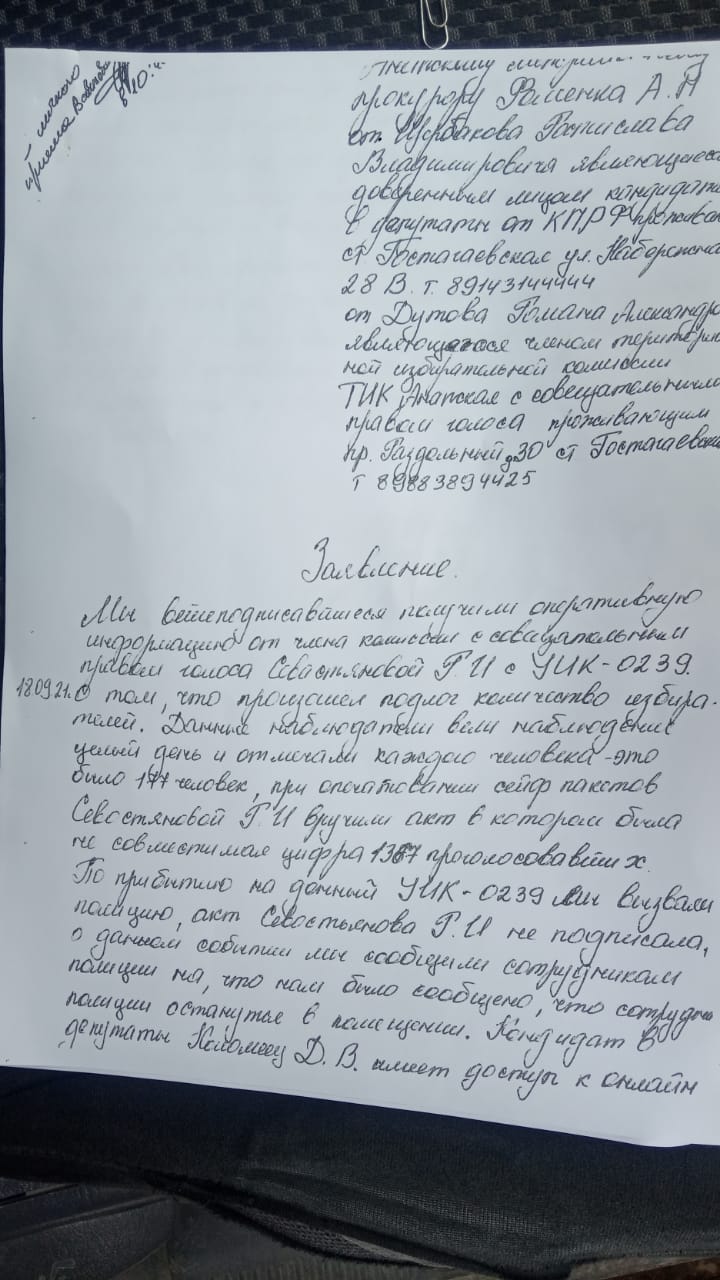 С личного
приема
8 10 ч.
Анапскому
прокурору Фоменко А. А
от Щербакова Ростислава
Владимировича являющегося
доверенным лицом кандидата
в депутаты от КПРФ прожива
ст Гостагаевская ул. Набережная
28 В. т. 89143144444
от Дутова Романа Александро
являющегося членом территориаль
ной избирательной комиссии
ТИК Анапская с совещательным
правом голоса проживающим
пр. Раздольный д 30 ст Гостагаевск
т 89883894425
Заявление.
Мы вышеподписавшиеся получили оперативную
информацию от члена комиссии с совещательным
правом голоса Севастьяновой Г. И с УИК-0239.
18.09.21. О том, что произошел подлог количество избира-
телей. Данные наблюдатели вели наблюдение
целый день и отмечали каждого человека - это
было 177 человек, при опечатовании сейф пакетов
Севостяновой Г. И вручили акт в котором была
не совместимая цифра 1367 проголосовавших.
По прибытию на данный УИК-0239 мы вызвали
полицию, акт Севостьянова Г. И не подписала,
о данном событии мы сообщили сотрудникам
полиции на, что нам было сообщено, что сотрудни
полиции останутся в помещении. Кандидат в
депутаты Коломеец Д. В. имеет доступ к онлайн